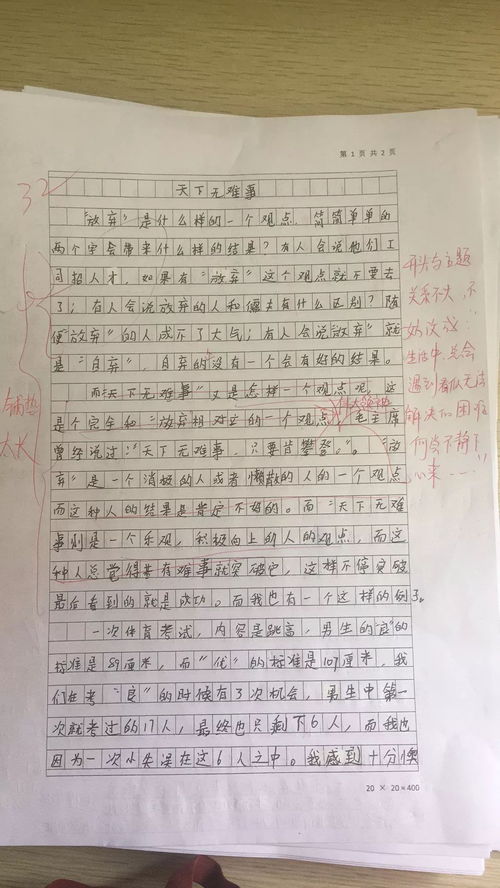 第 1 页 共 2 页
32
天下无难事
“放弃”是什么样的一个观点，简简单单的
两个字会带来什么样的结果？有人会说他们工
司招人才，如果有“放弃”这个观点就不要去
了；有人会说放弃的人和懦夫有什么区别？随
便“放弃”的人成不了大气；有人会说“放弃”就
是“自弃”，自弃的没有一个会有好的结果。
而“天下无难事”又是怎样一个观点呢，这
是个完全和“放弃”相对立的一个观点，毛主席
曾经说过：“天下无难事，只要肯攀登。”。“放
弃”是一个消极的人或者懒散的人的一个观点
而这种人的结果是肯定不好的。而“天下无难
事”则是一个乐观，积极向上的人的观点，而这
种人总觉得来有难事就突破它，这样不停突破
最后看到的就是成功。而我也有一个这样的例子。
一次体育考试，内容是跳高，男生的“良”的
标准是89厘米，而“优”的标准是107厘米，我
们在考“良”的时候有了次机会，男生中第一
次就考过的17人，最终也只剩下6人，而我也
因为一次小失误在这6人之中。我感到十分懊
20 × 20=400
铺垫
太长
开头与主题
关系不大，不
妨改成：
生活中，总会
遇到看似无法
解决的困难
何尝不静下
心来……